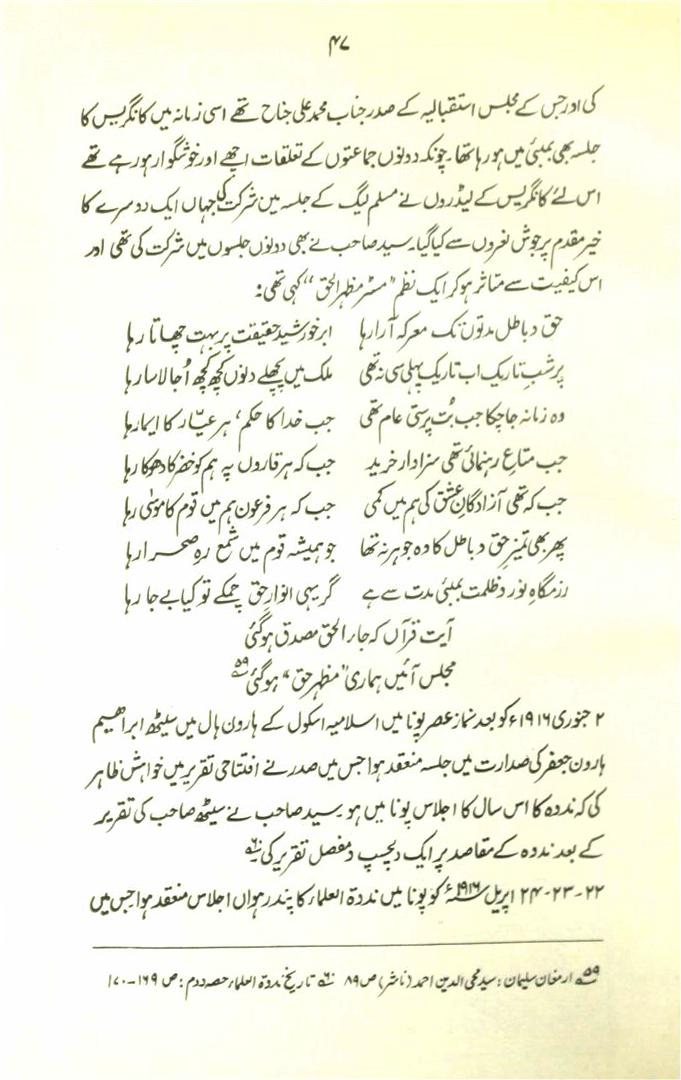 ۴۷
کی اور جس کے مجلس استقبالیہ کے صدر جناب محمد علی جناح تھے اسی زمانہ میں کانگریس کا
جلسہ بھی بمبئی میں ہو رہا تھا۔ چونکہ دونوں جماعتوں کے تعلقات اچھے اور خوشگوار ہو رہے تھے
اس لئے کانگریس کے لیڈروں نے مسلم لیگ کے جلسہ میں شرکت کی جہاں ایک دوسرے کا
خیر مقدم پرجوش نعروں سے کیا گیا۔ سید صاحب نے بھی دونوں جلسوں میں شرکت کی تھی اور
اس کیفیت سے متاثر ہو کر ایک نظم "مسٹر مظہر الحق" کہی تھی:
حق و باطل مدتوں تک معرکہ آرا رہا ابر خورشید حقیقت پر بہت چھاتا رہا
پر شبِ تاریک اب تاریک پہلی سی نہ تھی ملک میں پچھلے دنوں کچھ کچھ اُجالا سا رہا
وہ زمانہ جا چکا جب بُت پرستی عام تھی جب خدا کا حکم، ہر عیّار کا ایما رہا
جب متاعِ رہنمائی تھی سزا دار خرید جب کہ ہر قاروں پہ ہم کو خضر کا دھوکا رہا
جب کہ تھی آزادگانِ عشق کی ہم میں کمی جب کہ ہر فرعون ہم میں قوم کا موسٰی رہا
پھر بھی تمیزِ حق و باطل کا وہ جوہر نہ تھا جو ہمیشہ قوم میں شمع رہِ صحرا رہا
رزمگاہِ نور و ظلمت بمبئی مدت سے ہے گر یہی انوارِ حق چمکے تو کیا بے جا رہا
آیت قرآں کہ جاء الحق مصدق ہو گئی
مجلس آئیں ہماری "مظہر حق" ہو گئی ۵۹
۲ جنوری ۱۹۱۶ء کو بعد نماز عصر پونا میں اسلامیہ اسکول کے ہارون ہال میں سیٹھ ابراھیم
ہارون جعفر کی صدارت میں جلسہ منعقد ہوا جس میں صدر نے افتتاحی تقریر میں خواہش ظاہر
کی کہ ندوہ کا اس سال کا اجلاس پونا میں ہو۔ سید صاحب نے سیٹھ صاحب کی تقریر
کے بعد ندوہ کے مقاصد پر ایک دلچسپ و مفصل تقریر کی ۶۰
۲۲-۲۳-۲۴ اپریل ۱۹۱۶ء کو پونا میں ندوۃ العلماء کا پندرہواں اجلاس منعقد ہوا جس میں
۵۹ ارمغان سلیمان: سید محی الدین احمد (ناشر) ص ۸۹ ۶۰ تاریخ ندوۃ العلماء حصہ دوم: ص ۱۶۹-۱۷۰